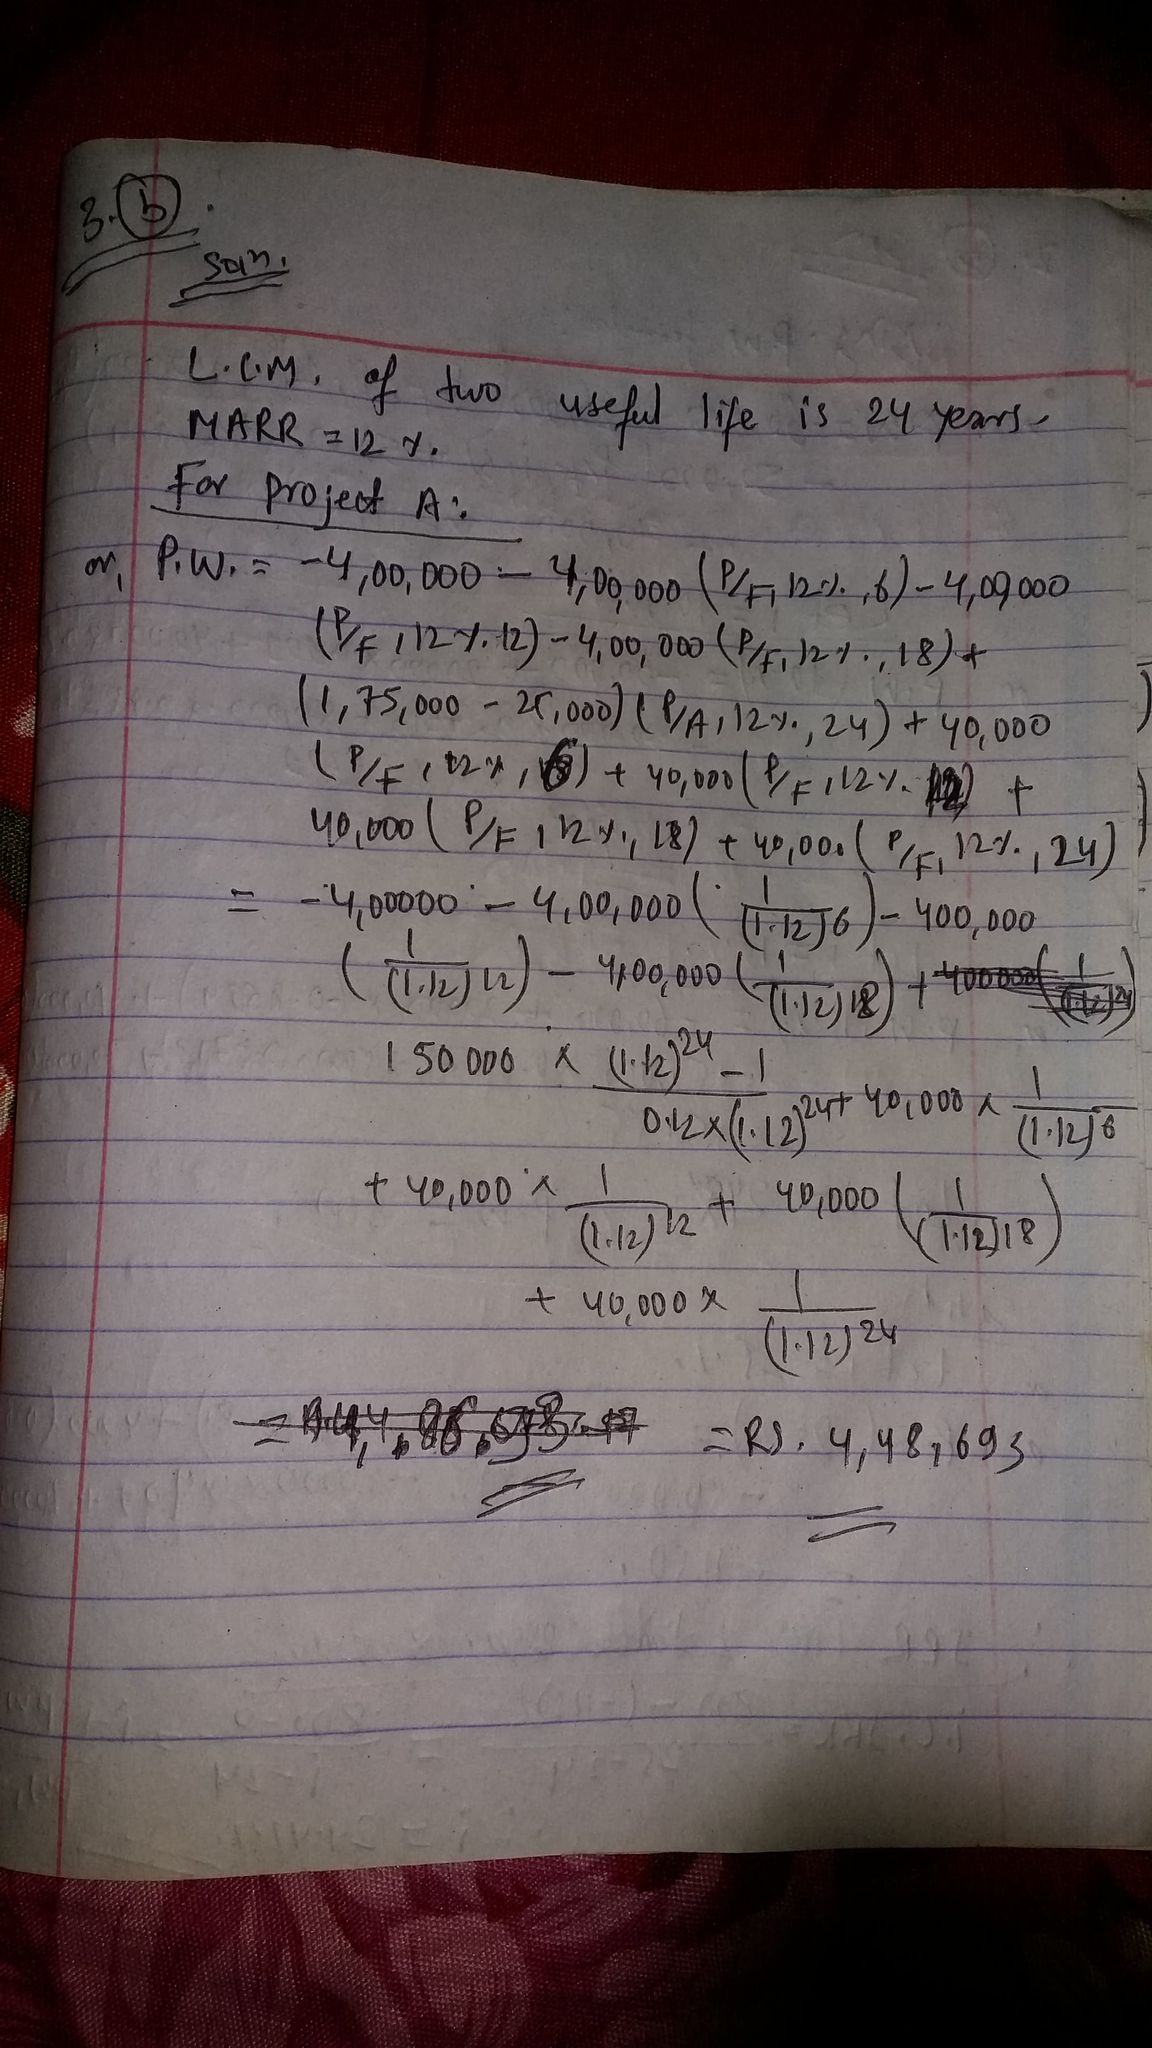 3. b .
Soln.
L.C.M. of two useful life is 24 years.
MARR = 12 %.
For project A:.
or, P.W. = -4,00,000 - 4,00,000 (P/F, 12%, 6) - 4,00,000
(P/F, 12%, 12) - 4,00,000 (P/F, 12%, 18) +
(1,75,000 - 25,000) (P/A, 12%, 24) + 40,000
(P/F, 12%, 6) + 40,000 (P/F, 12%, 12) +
40,000 (P/F, 12%, 18) + 40,000 (P/F, 12%, 24)
= -4,00000 - 4,00,000 (1/(1.12)6) - 400,000
(1/(1.12)12) - 4,00,000 (1/(1.12)18) +
150000 × (1.12)^24 - 1 / 0.12×(1.12)^24 + 40,000 × 1/(1.12)6
+ 40,000 × 1/(1.12)^12 + 40,000 (1/(1.12)18)
+ 40,000 × 1/(1.12)^24
= RS. 4,48,693